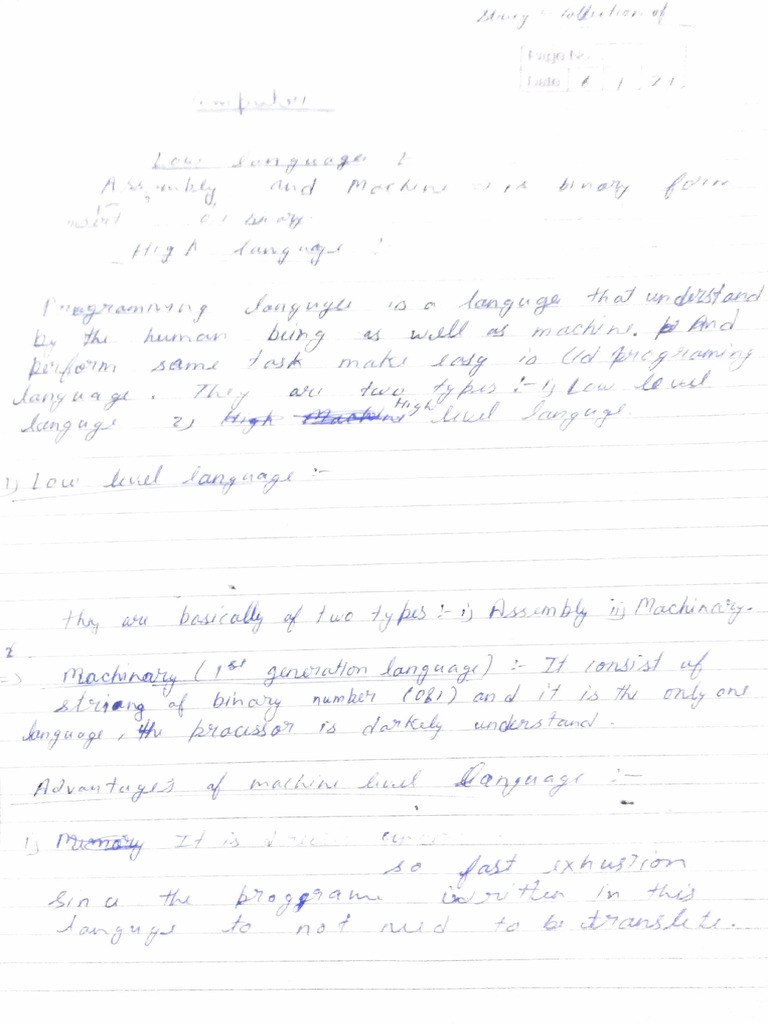 String : Collection of
Page No.
Date 6 1 21
Computer
Low language :
Assembly and Machine → is binary form
binary
High language :
Programiving langugle is a languge that understand
by the human being as well as machine. And
perform same task make easy is Cld programing
language. They are two types :- 1) Low level
languge 2) High Machine High level languge.
1) Low level language :-
they are basically of two types :- i) Assembly ii) Machinary.
=> Machinary (1st generation language) :- It consist of
striang of binary number (0&1) and it is the only one
language, the processor is darkely understand.
Advantages of machine level Language :-
1) Memory It is
so fast exhustion
Since the proggrame written in this
languge to not need to be translete.